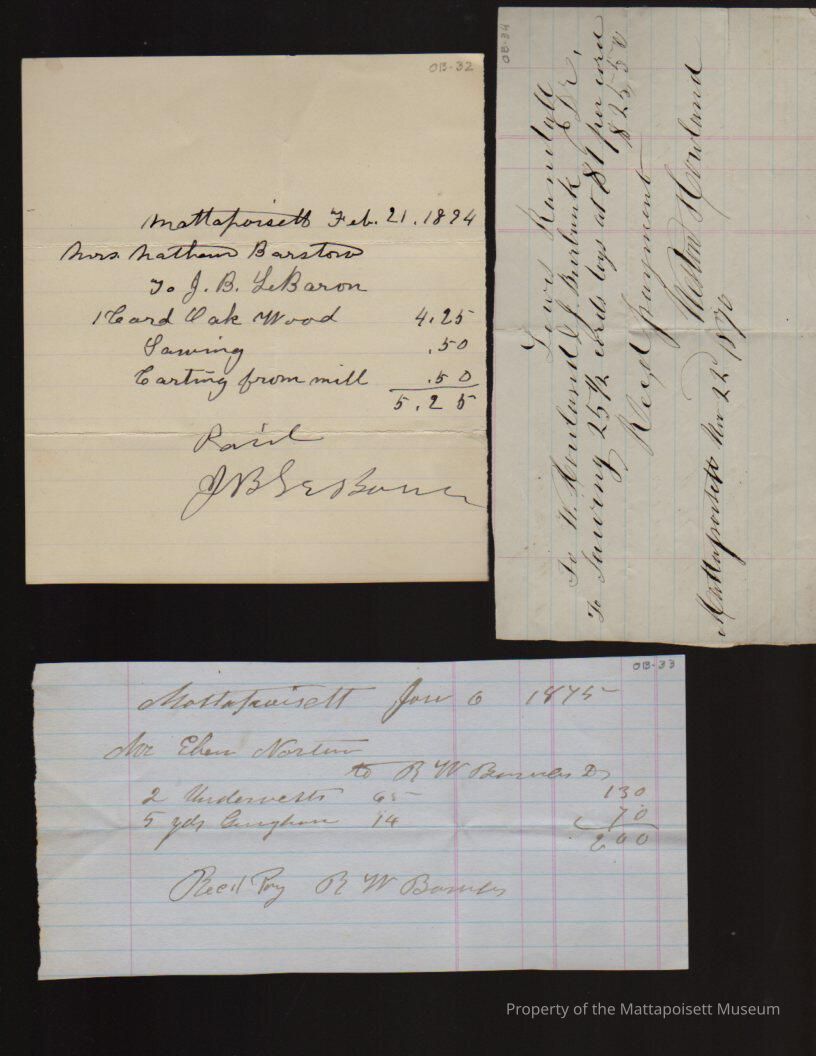 OB-32
Mattapoisett Feb. 21. 1894
Mrs. Nathan Barstow
To J. B. LeBaron
1 Card Oak Wood 4.25
Sawing .50
Carting from mill .50
5.25
Paid
J B LeBaron
OB-34
Lewis Randall
To W. Howland & J Burbank Dr,
To Sawing 25 1/2 cords logs at $1 per cord
$25.50
Recd payment
Weston Howland
Mattapoisett Nov 22d 1870
OB-33
Mattapoisett Jan 6 1875
Mr Eben Norton
to R W Barnes Dr
2 Undervests 65 130
5 yds Gingham 14 70
200
Recd Pay R W Barnes
Property of the Mattapoisett Museum